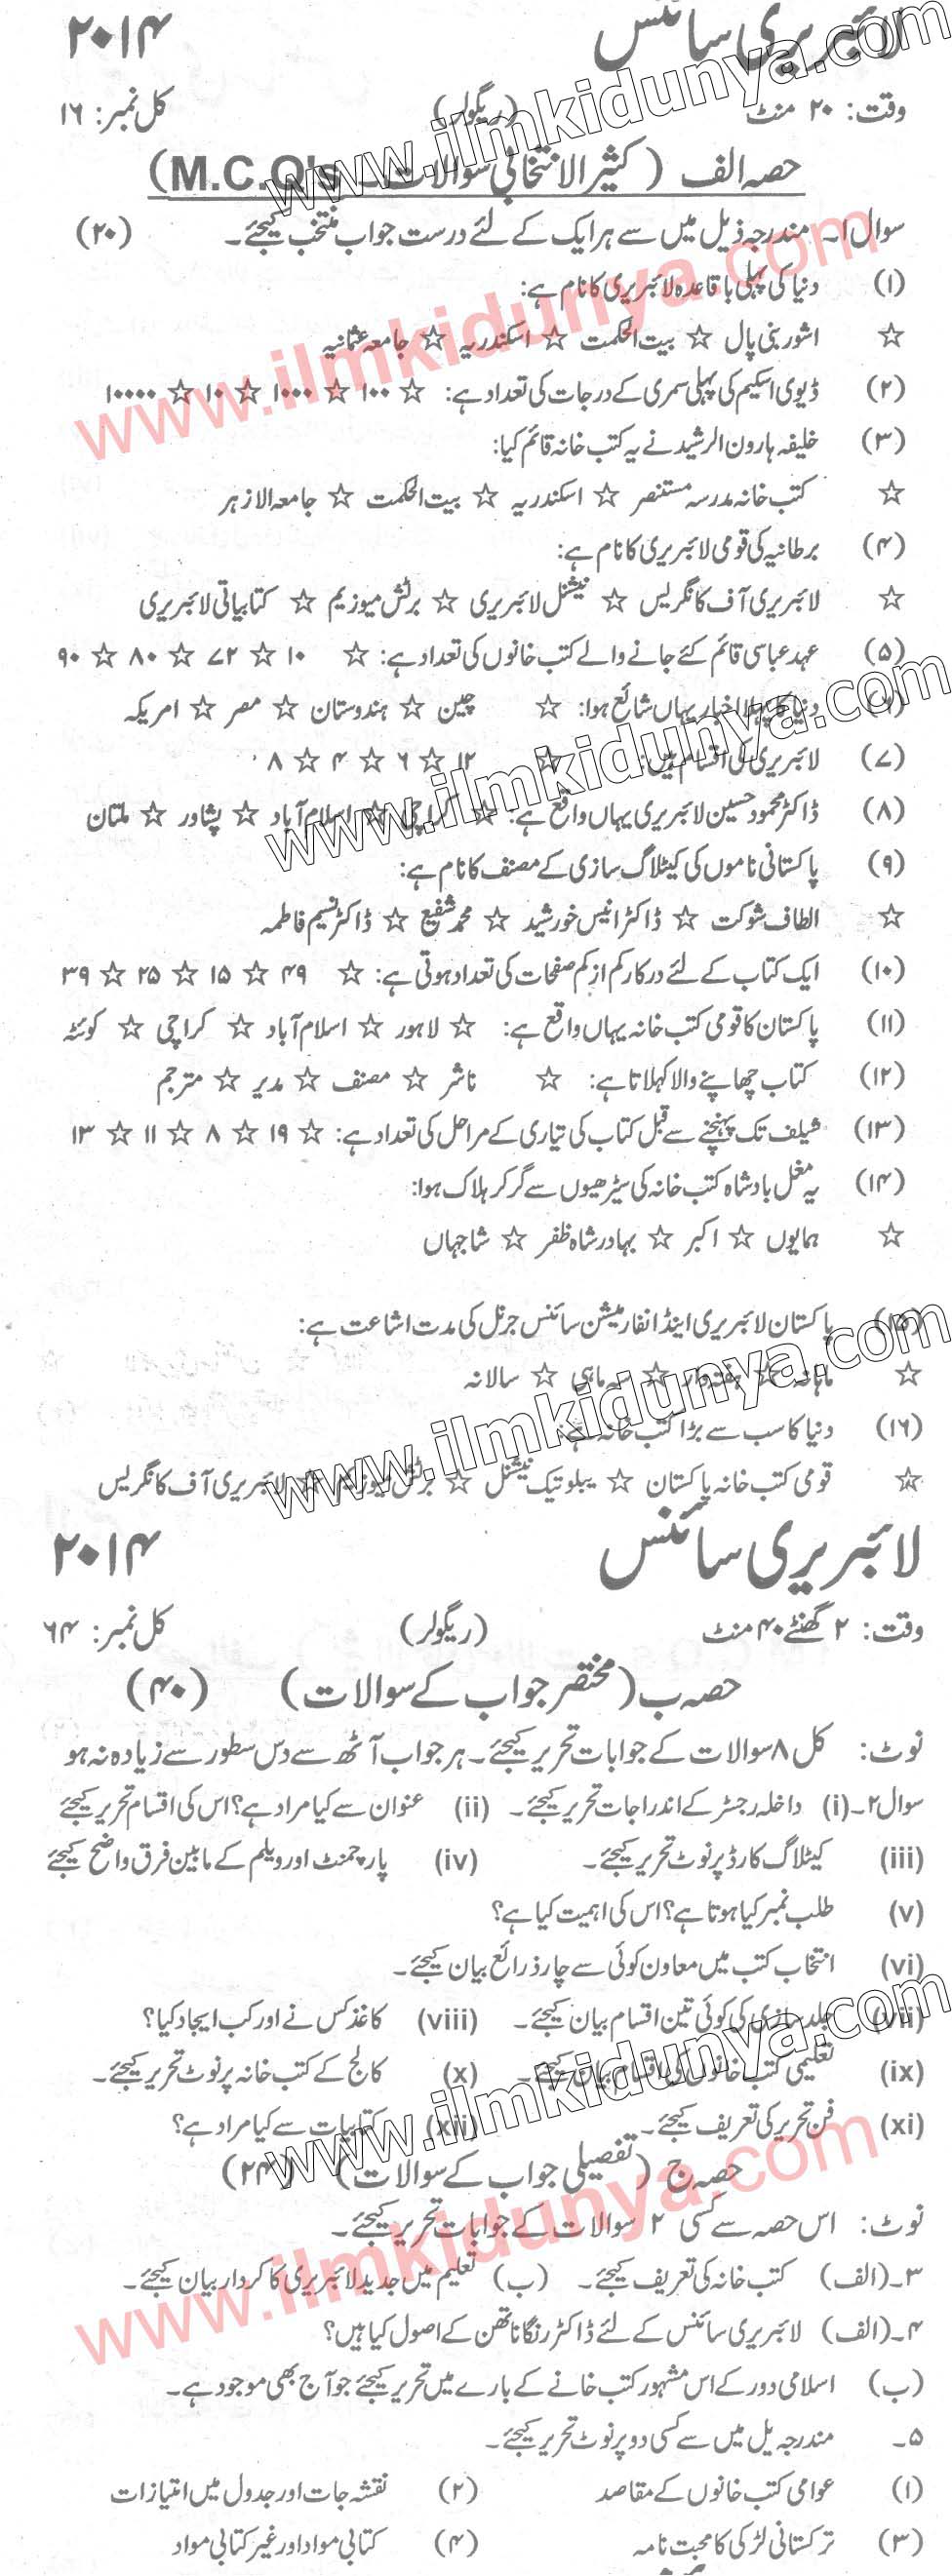 لائبریری سائنس ۲۰۱۴
وقت: ۲۰ منٹ (ریگولر) کل نمبر: ۱۶
حصہ الف (کثیر الانتخابی سوالات M.C.Q's)
سوال ۱۔ مندرجہ ذیل میں سے ہر ایک کے لئے درست جواب منتخب کیجئے۔ (۲۰)
(۱) دنیا کی پہلی باقاعدہ لائبریری کا نام ہے:
☆ اشور بنی پال ☆ بیت الحکمت ☆ اسکندریہ ☆ جامعہ عثمانیہ
(۲) ڈیوی اسکیم کی پہلی سمری کے درجات کی تعداد ہے: ☆ ۱۰۰ ☆ ۱۰۰۰ ☆ ۱۰ ☆ ۱۰۰۰۰
(۳) خلیفہ ہارون الرشید نے یہ کتب خانہ قائم کیا:
☆ کتب خانہ مدرسہ مستنصر ☆ اسکندریہ ☆ بیت الحکمت ☆ جامعہ الازہر
(۴) برطانیہ کی قومی لائبریری کا نام ہے:
☆ لائبریری آف کانگریس ☆ نیشنل لائبریری ☆ برٹش میوزیم ☆ کتابیاتی لائبریری
(۵) عہد عباسی قائم کئے جانے والے کتب خانوں کی تعداد ہے: ☆ ۱۰ ☆ ۷۲ ☆ ۸۰ ☆ ۹۰
(۶) دنیا کا پہلا اخبار یہاں شائع ہوا: ☆ چین ☆ ہندوستان ☆ مصر ☆ امریکہ
(۷) لائبریری کی اقسام ہیں: ☆ ۱۲ ☆ ۶ ☆ ۴ ☆ ۸
(۸) ڈاکٹر محمود حسین لائبریری یہاں واقع ہے: ☆ کراچی ☆ اسلام آباد ☆ پشاور ☆ ملتان
(۹) پاکستانی ناموں کی کیٹلاگ سازی کے مصنف کا نام ہے:
☆ الطاف شوکت ☆ ڈاکٹر انیس خورشید ☆ محمد شفیع ☆ ڈاکٹر نسیم فاطمہ
(۱۰) ایک کتاب کے لئے درکار کم از کم صفحات کی تعداد ہوتی ہے: ☆ ۴۹ ☆ ۱۵ ☆ ۲۵ ☆ ۳۹
(۱۱) پاکستان کا قومی کتب خانہ یہاں واقع ہے: ☆ لاہور ☆ اسلام آباد ☆ کراچی ☆ کوئٹہ
(۱۲) کتاب چھاپنے والا کہلاتا ہے: ☆ ناشر ☆ مصنف ☆ مدیر ☆ مترجم
(۱۳) شیلف تک پہنچنے سے قبل کتاب کی تیاری کے مراحل کی تعداد ہے: ☆ ۱۹ ☆ ۸ ☆ ۱۱ ☆ ۱۳
(۱۴) یہ مغل بادشاہ کتب خانہ کی سیڑھیوں سے گر کر ہلاک ہوا:
☆ ہمایوں ☆ اکبر ☆ بہادر شاہ ظفر ☆ شاجہاں
(۱۵) پاکستان لائبریری اینڈ انفارمیشن سائنس جرنل کی مدت اشاعت ہے:
☆ ماہانہ ☆ ہفتہ وار ☆ سہ ماہی ☆ سالانہ
(۱۶) دنیا کا سب سے بڑا کتب خانہ ہے:
☆ قومی کتب خانہ پاکستان ☆ ببلوتیک نیشنل ☆ برٹش میوزیم ☆ لائبریری آف کانگریس
لائبریری سائنس ۲۰۱۴
وقت: ۲ گھنٹے ۴۰ منٹ (ریگولر) کل نمبر: ۶۴
حصہ ب (مختصر جواب کے سوالات) (۴۰)
نوٹ: کل ۸ سوالات کے جوابات تحریر کیجئے۔ ہر جواب آٹھ سے دس سطور سے زیادہ نہ ہو
سوال ۲۔ (i) داخلہ رجسٹر کے اندراجات تحریر کیجئے۔ (ii) عنوان سے کیا مراد ہے؟ اس کی اقسام تحریر کیجئے
(iii) کیٹلاگ کارڈ پر نوٹ تحریر کیجئے۔ (iv) پارچمنٹ اور ویلم کے مابین فرق واضح کیجئے
(v) طلب نمبر کیا ہوتا ہے؟ اس کی اہمیت کیا ہے؟
(vi) انتخاب کتب میں معاون کوئی سے چار ذرائع بیان کیجئے۔
(vii) جلد سازی کی کوئی تین اقسام بیان کیجئے۔ (viii) کاغذ کس نے اور کب ایجاد کیا؟
(ix) تعلیمی کتب خانوں کی اقسام بیان کیجئے۔ (x) کالج کے کتب خانہ پر نوٹ تحریر کیجئے۔
(xi) فن تحریر کی تعریف کیجئے۔ (xii) کتابیات سے کیا مراد ہے؟
حصہ ج (تفصیلی جواب کے سوالات) (۲۴)
نوٹ: اس حصہ سے کسی ۲ سوالات کے جوابات تحریر کیجئے۔
۳۔ (الف) کتب خانہ کی تعریف کیجئے۔ (ب) تعلیم میں جدید لائبریری کا کردار بیان کیجئے۔
۴۔ (الف) لائبریری سائنس کے لئے ڈاکٹر رنگاناتھن کے اصول کیا ہیں؟
(ب) اسلامی دور کے اس مشہور کتب خانے کے بارے میں تحریر کیجئے جو آج بھی موجود ہے۔
۵۔ مندرجہ یل میں سے کسی دو پر نوٹ تحریر کیجئے۔
(۱) عوامی کتب خانوں کے مقاصد (۲) نقشہ جات اور جدول میں امتیازات
(۳) ترکستانی لڑکی کا محبت نامہ (۴) کتابی مواد اور غیر کتابی مواد
www.ilmkidunya.com
www.ilmkidunya.com
www.ilmkidunya.com
www.ilmkidunya.com
www.ilmkidunya.com
www.ilmkidunya.com